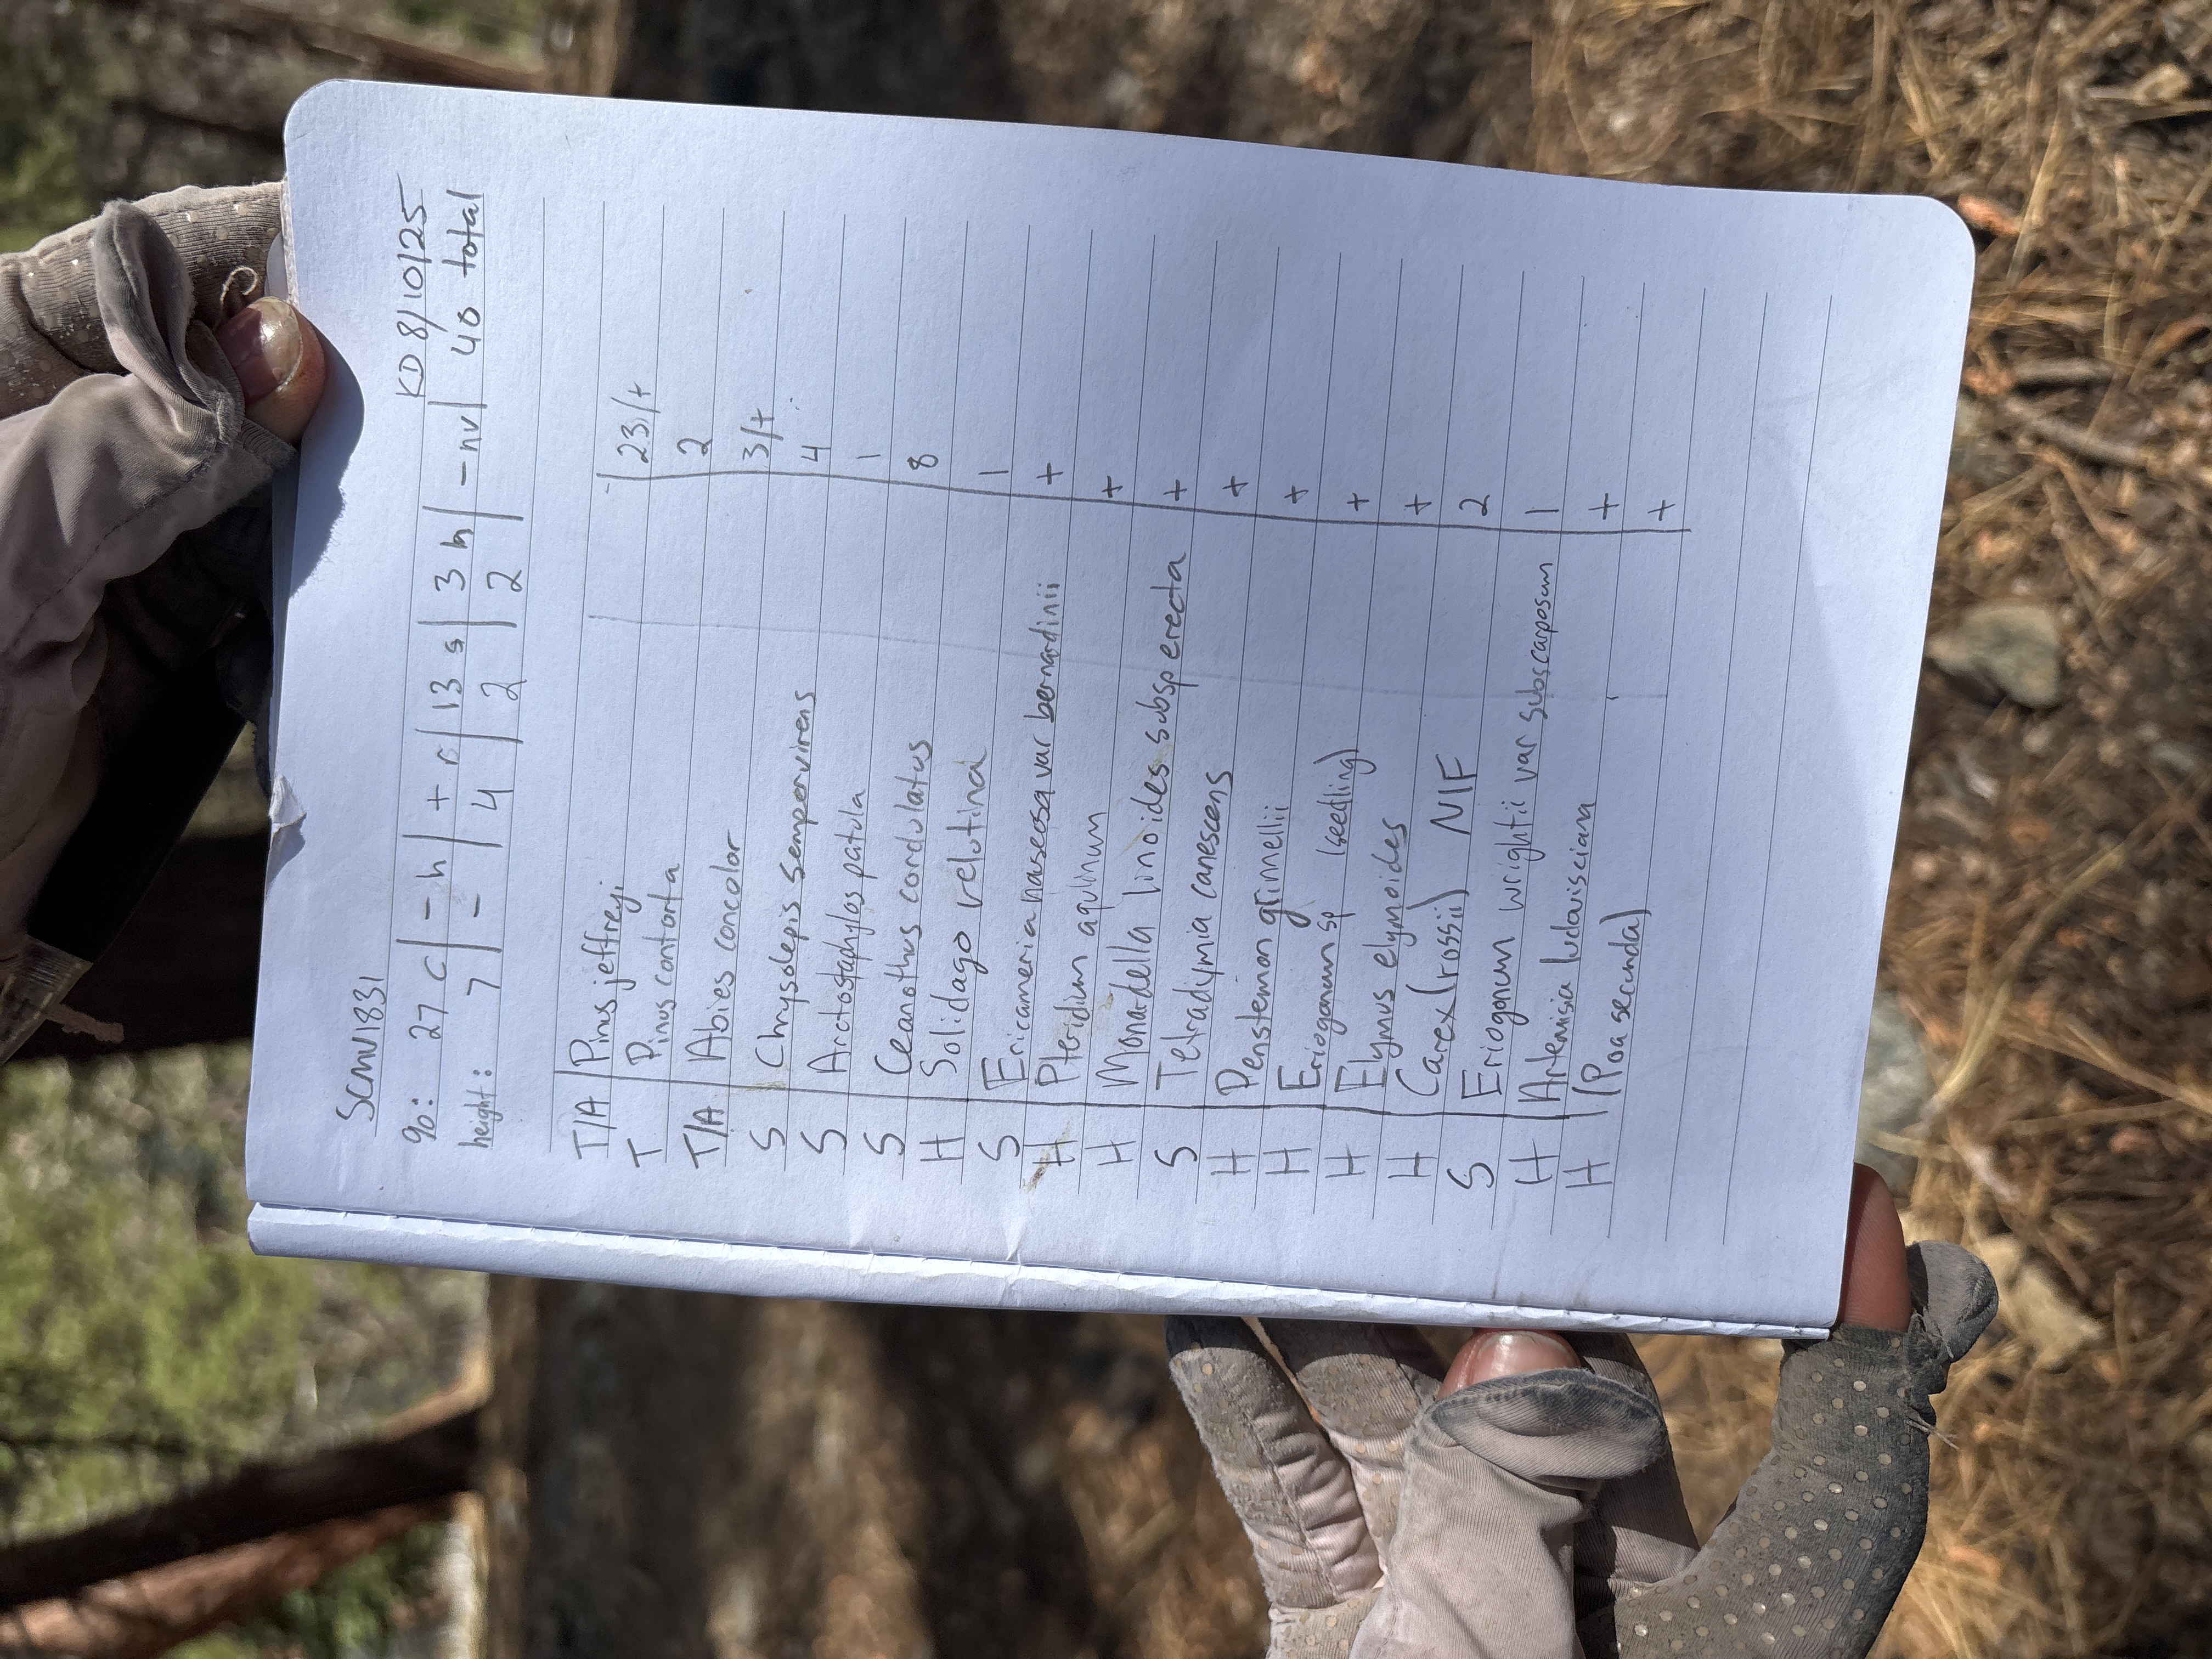 SCMV1831 KD 8/10/25
%: 27 c | - h | + r | 13 s | 3 h | - nv | 40 total
height: 7 | - | 4 | 2 | 2 |
T/A | Pinus jeffreyi | 23/+
T | Pinus contorta | 2
T/A | Abies concolor | 3/+
S | Chrysolepis sempervirens | 4
S | Arctostaphylos patula | 1
S | Ceanothus cordulatus | 8
H | Solidago velutina | 1
S | Ericameria nauseosa var bernardinii | +
H | Pteridium aqulinum | +
H | Monardella linoides subsp erecta | +
S | Tetradymia canescens | +
H | Penstemon grinnellii | +
H | Eriogonum sp (seedling) | +
H | Elymus elymoides | +
H | Carex (rossii) NIF | 2
S | Eriogonum wrightii var subscaposum | 1
H | Artemisia ludoviciana | +
H | (Poa secunda) | +